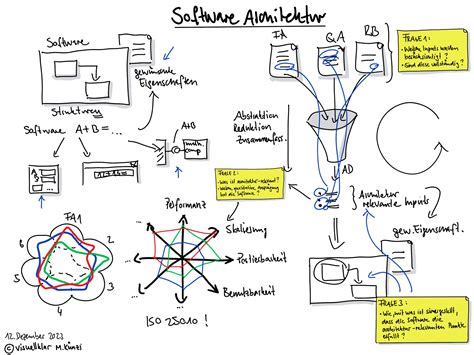 Software Architektur
Software
Strukturen
gewünschte
Eigenschaften
IA
Q&A
RB
FRAGE 1:
- Welche Inputs werden
berücksichtigt?
- Sind diese vollständig?
Software A+B = ...
A+B
math.
comp
Abstraktion
Reduktion
Zusammenfass.
AD
FRAGE 2:
- Was ist architektur-relevant?
hat die Software?
Architektur
relevante Inputs
gew. Eigenschaft.
FA1
2
3
4
5
6
Performanz
Skalierung
Portierbarkeit
Benutzbarkeit
...
...
ISO 25010 !
FRAGE 3:
- Wie wird sichergestellt,
dass die Software die
architektur-relevanten Punkte
erfüllt?
12. Dezember 2023
© visuellklar M. Künzi